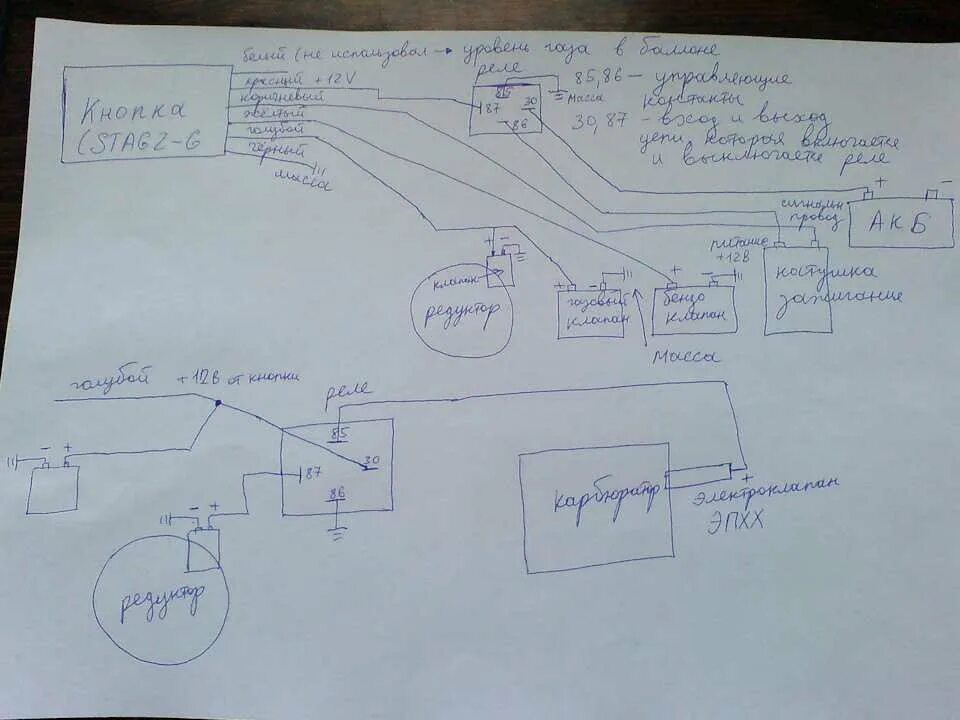 белый (не использовал → уровень газа в баллоне
красный +12V
коричневый
жёлтый
голубой
чёрный
масса
Кнопка
(STAG2-G
реле
85
87
30
86
Масса
85,86 – управляющие
контакты
30,87 – вход и выход
цепи которая включается
и выключается реле
+ -
АКБ
сигнальн
провод
питание
+12В
катушка
зажигание
+ -
клапан
редуктор
+ -
газовый
клапан
+ -
бензо
клапан
Масса
голубой +12В от кнопки
реле
85
87
30
86
- +
- +
редуктор
карбюратор
+
электроклапан
ЭПХХ